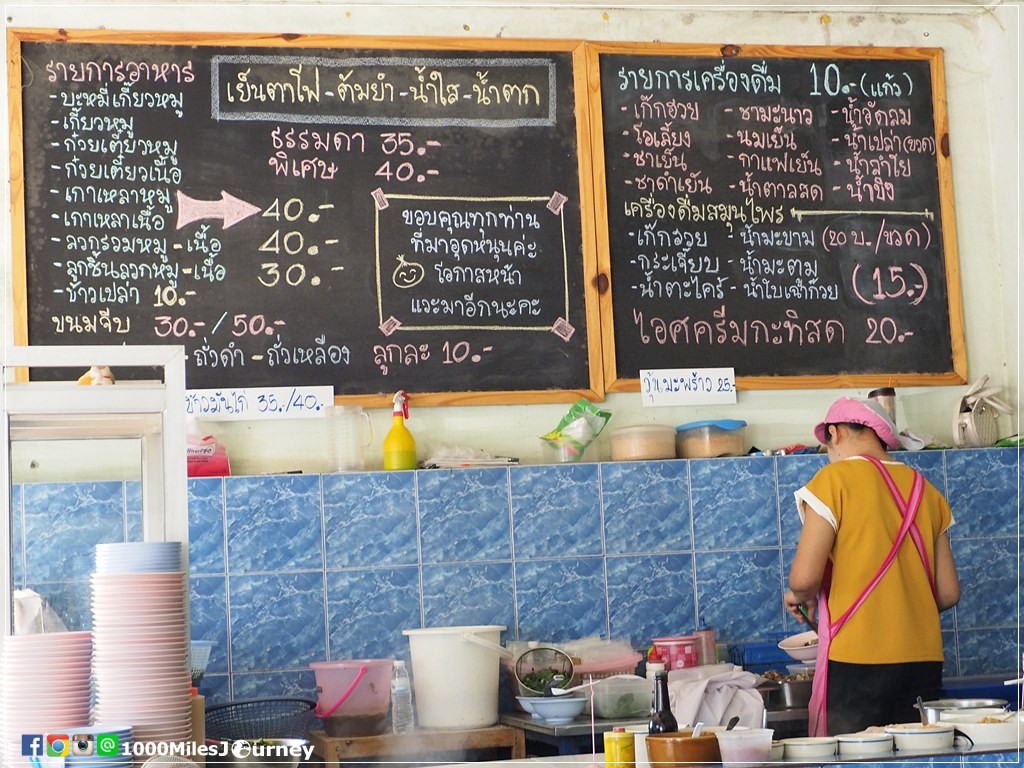 รายการอาหาร
เย็นตาโฟ - ต้มยำ - น้ำใส - น้ำตก
- บะหมี่เกี๊ยวหมู
- เกี๊ยวหมู
- ก๋วยเตี๋ยวหมู
- ก๋วยเตี๋ยวเนื้อ
- เกาเหลาหมู
- เกาเหลาเนื้อ
- ลวกรวมหมู - เนื้อ
- ลูกชิ้นลวกหมู - เนื้อ
- ข้าวเปล่า 10.-
ขนมจีบ 30.-/50.-
- ถั่วดำ - ถั่วเหลือง ลูกละ 10.-
ธรรมดา 35.-
พิเศษ 40.-
40.-
40.-
30.-
ขอบคุณทุกท่าน
ที่มาอุดหนุนค่ะ
โอกาสหน้า
แวะมาอีกนะคะ
รายการเครื่องดื่ม 10.- (แก้ว)
- เก๊กฮวย - ชามะนาว - น้ำอัดลม
- โอเลี้ยง - นมเย็น - น้ำเปล่า (ขวด)
- ชาเย็น - กาแฟเย็น - น้ำลำไย
- ชาดำเย็น - น้ำตาลสด - น้ำขิง
เครื่องดื่มสมุนไพร
- เก๊กฮวย - น้ำมะขาม (20 บ./ขวด)
- กระเจี๊ยบ - น้ำมะตูม
- น้ำตะไคร้ - น้ำใบเฉาก๊วย (15.-)
ไอศครีมกะทิสด 20.-
ข้าวมันไก่ 35./40.-
วุ้นมะพร้าว 25.-
1000MilesJourney